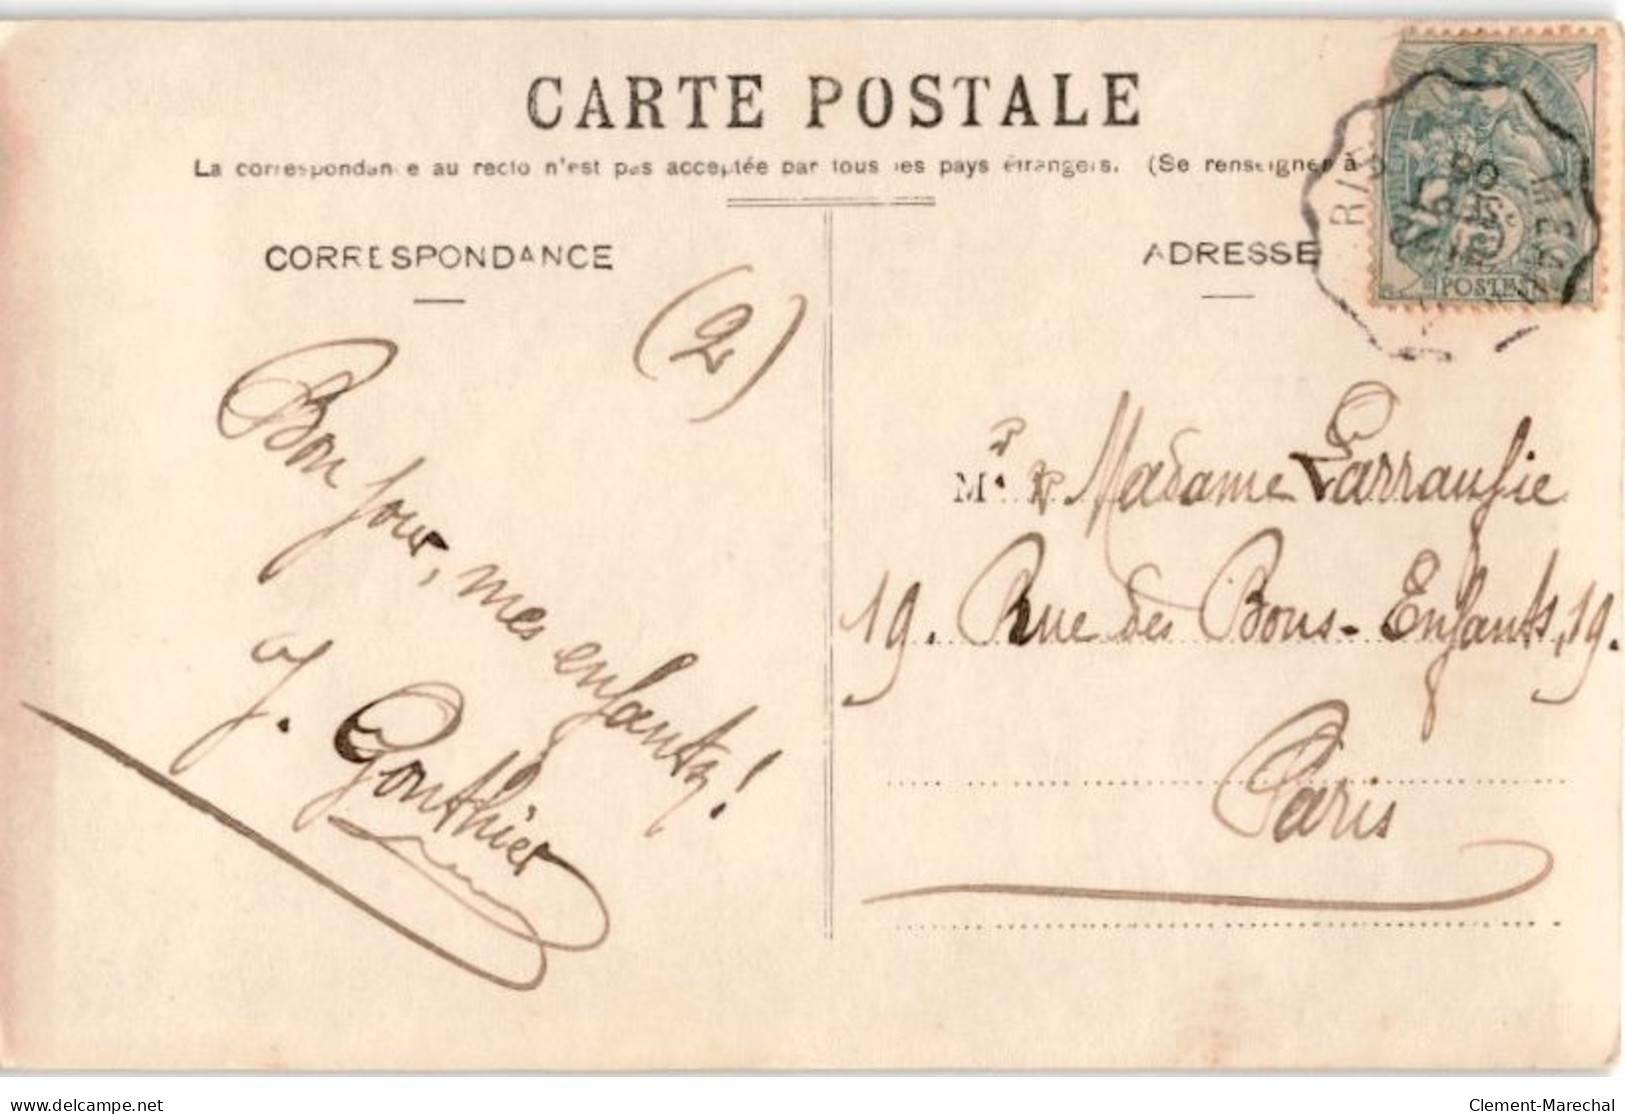 CARTE POSTALE
La correspondance au recto n'est pas acceptée par tous les pays étrangers. (Se renseigner à
CORRESPONDANCE
ADRESSE
POSTES
(2)
Bonjour, mes enfants!
J. Gonthier
M. et Madame Larraufie
19. Rue des Bons-Enfants, 19.
Paris
delcampe.net
Clement-Marechal